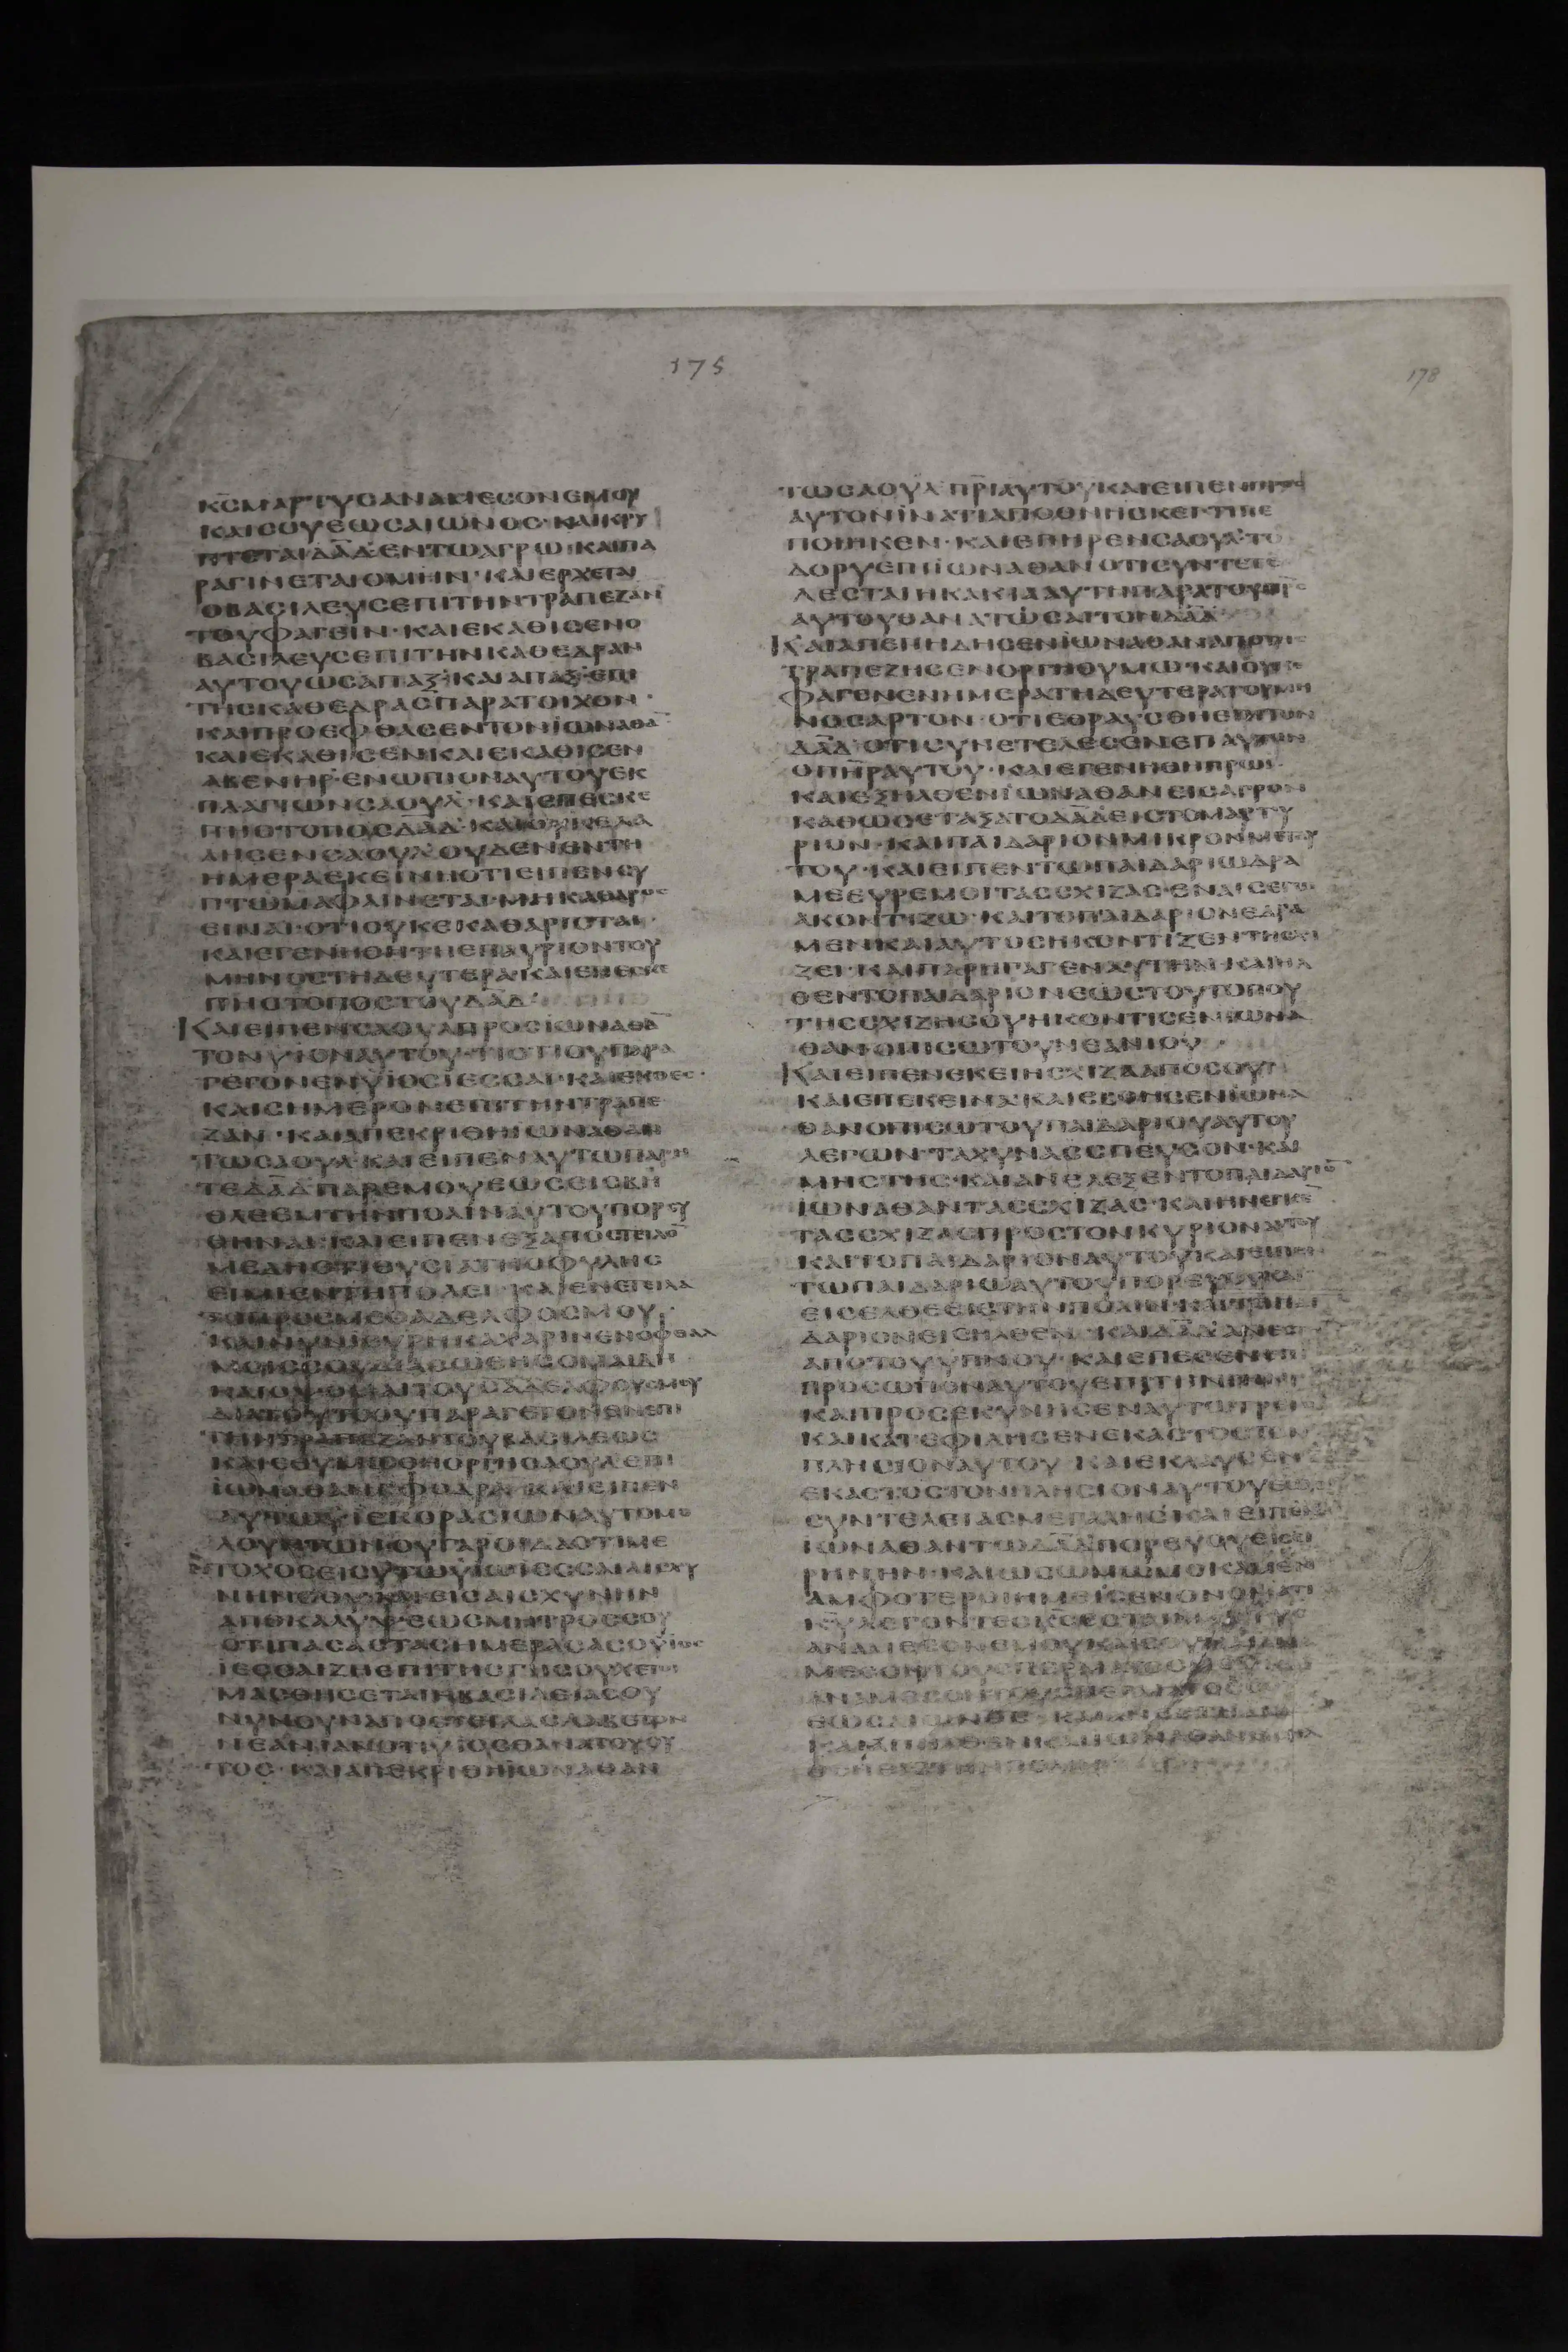 175
178
ΚϹ ΜΑΡΤΥϹ ΑΝΑΜΕϹΟΝ ΕΜΟΥ
ΚΑΙ ϹΟΥ ΕΩϹ ΑΙΩΝΟϹ· ΚΑΙ ΚΡΥ
ΠΤΕΤΑΙ ΔΑΔ ΕΝ ΤΩ ΑΓΡΩ· ΚΑΙ ΠΑ
ΡΑΓΙΝΕΤΑΙ Ο ΜΗΝ· ΚΑΙ ΕΡΧΕΤΑΙ
Ο ΒΑϹΙΛΕΥϹ ΕΠΙ ΤΗΝ ΤΡΑΠΕΖΑΝ
ΤΟΥ ΦΑΓΕΙΝ· ΚΑΙ ΕΚΑΘΙϹΕΝ Ο
ΒΑϹΙΛΕΥϹ ΕΠΙ ΤΗΝ ΚΑΘΕΔΡΑΝ
ΑΥΤΟΥ ΩϹ ΑΠΑΞ· ΚΑΙ ΑΠΑΞ· ΕΠΙ
ΤΗϹ ΚΑΘΕΔΡΑϹ ΠΑΡΑ ΤΟΙΧΟΝ·
ΚΑΙ ΠΡΟΕΦΘΑϹΕΝ ΤΟΝ ΙΩΝΑΘΑ
ΚΑΙ ΕΚΑΘΙϹΕΝ ΚΑΙ ΕΚΑΘΙϹΕΝ
ΑΒΕΝΗΡ· ΕΝΩΠΙΟΝ ΑΥΤΟΥ ΕΚ
ΠΛΑΓΙΩΝ ϹΑΟΥΛ· ΚΑΙ ΕΠΕϹΚΕ
ΠΗ Ο ΤΟΠΟϹ ΔΑΔ· ΚΑΙ ΟΥΚ ΕΛΑ
ΛΗϹΕΝ ϹΑΟΥΛ ΟΥΔΕΝ ΕΝ ΤΗ
ΗΜΕΡΑ ΕΚΕΙΝΗ ΟΤΙ ΕΙΠΕΝ ϹΥ
ΠΤΩΜΑ ΦΑΙΝΕΤΑΙ ΜΗ ΚΑΘΑΡΟϹ
ΕΙΝΑΙ· ΟΤΙ ΟΥ ΚΕΚΑΘΑΡΙϹΤΑΙ·
ΚΑΙ ΕΓΕΝΗΘΗ ΤΗ ΕΠΑΥΡΙΟΝ ΤΟΥ
ΜΗΝΟϹ ΤΗ ΔΕΥΤΕΡΑ· ΚΑΙ ΕΠΕϹΚΕ
ΠΗ Ο ΤΟΠΟϹ ΤΟΥ ΔΑΔ·
ΚΑΙ ΕΙΠΕΝ ϹΑΟΥΛ ΠΡΟϹ ΙΩΝΑΘΑ
ΤΟΝ ΥΙΟΝ ΑΥΤΟΥ· ΤΙ ΟΤΙ ΟΥ ΠΑΡΑ
ΓΕΓΟΝΕΝ ΥΙΟϹ ΙΕϹϹΑΙ· ΚΑΙ ΕΧΘΕϹ·
ΚΑΙ ϹΗΜΕΡΟΝ ΕΠΙ ΤΗΝ ΤΡΑΠΕ
ΖΑΝ· ΚΑΙ ΑΠΕΚΡΙΘΗ ΙΩΝΑΘΑΝ
ΤΩ ϹΑΟΥΛ· ΚΑΙ ΕΙΠΕΝ ΑΥΤΩ ΠΑΡΗ
ΤΕ ΔΑΔ ΠΑΡ ΕΜΟΥ ΕΩϹ ΕΙϹ ΒΗ
ΘΛΕΕΜ ΤΗΝ ΠΟΛΙΝ ΑΥΤΟΥ ΠΟΡΕΥ
ΘΗΝΑΙ· ΚΑΙ ΕΙΠΕΝ ΕΞΑΠΟϹΤΕΙΛΟ
ΜΕ ΔΗ ΟΤΙ ΘΥϹΙΑ ΤΗϹ ΦΥΛΗϹ
ΕΝ ΤΗ ΠΟΛΕΙ· ΚΑΙ ΕΝΕΤΕΙΛΑ
ΤΟ ΠΡΟϹ ΜΕ Ο ΑΔΕΛΦΟϹ ΜΟΥ·
ΚΑΙ ΝΥΝ ΕΙ ΕΥΡΗΚΑ ΧΑΡΙΝ ΕΝ ΟΦΘΑΛ
ΜΟΙϹ ϹΟΥ ΔΙΑϹΩΘΗϹΟΜΑΙ ΔΗ
ΚΑΙ ΟΨΟΜΑΙ ΤΟΥϹ ΑΔΕΛΦΟΥϹ ΜΟΥ
ΔΙΑ ΤΟΥΤΟ ΟΥ ΠΑΡΑΓΕΓΟΝΕΝ ΕΠΙ
ΤΗΝ ΤΡΑΠΕΖΑΝ ΤΟΥ ΒΑϹΙΛΕΩϹ
ΚΑΙ ΕΘΥΜΩΘΗ ΟΡΓΗ ϹΑΟΥΛ ΕΠΙ
ΙΩΝΑΘΑΝ ϹΦΟΔΡΑ ΚΑΙ ΕΙΠΕΝ
ΑΥΤΩ ΥΙΕ ΚΟΡΑϹΙΩΝ ΑΥΤΟΜΟ
ΛΟΥΝΤΩΝ ΟΥ ΓΑΡ ΟΙΔΑ ΟΤΙ ΜΕ
ΤΟΧΟϹ ΕΙ ϹΥ ΤΩ ΥΙΩ ΙΕϹϹΑΙ ΕΙϹ ΑΙϹΧΥ
ΝΗΝ ϹΟΥ ΚΑΙ ΕΙϹ ΑΙϹΧΥΝΗΝ
ΑΠΟΚΑΛΥΨΕΩϹ ΜΗΤΡΟϹ ϹΟΥ
ΟΤΙ ΠΑϹΑϹ ΤΑϹ ΗΜΕΡΑϹ ΑϹ Ο ΥΙΟϹ
ΙΕϹϹΑΙ ΖΗ ΕΠΙ ΤΗϹ ΓΗϹ ΟΥΧ ΕΤΟΙ
ΜΑϹΘΗϹΕΤΑΙ Η ΒΑϹΙΛΕΙΑ ϹΟΥ
ΝΥΝ ΟΥΝ ΑΠΟϹΤΕΙΛΑϹ ΛΑΒΕ ΤΟΝ
ΝΕΑΝΙΑΝ ΟΤΙ ΥΙΟϹ ΘΑΝΑΤΟΥ ΟΥ
ΤΟϹ· ΚΑΙ ΑΠΕΚΡΙΘΗ ΙΩΝΑΘΑΝ
ΤΩ ϹΑΟΥΛ ΠΡΙ ΑΥΤΟΥ ΚΑΙ ΕΙΠΕΝ ΠΡΟϹ
ΑΥΤΟΝ ΙΝΑ ΤΙ ΑΠΟΘΝΗϹΚΕΙ· ΤΙ ΠΕ
ΠΟΙΗΚΕΝ· ΚΑΙ ΕΠΗΡΕΝ ϹΑΟΥΛ ΤΟ
ΔΟΡΥ ΕΠΙ ΙΩΝΑΘΑΝ ΟΤΙ ϹΥΝΤΕΤΕ
ΛΕϹΤΑΙ Η ΚΑΚΙΑ ΑΥΤΗ ΠΑΡΑ ΤΟΥ ΠΡϹ
ΑΥΤΟΥ ΘΑΝΑΤΩϹΑΙ ΤΟΝ ΔΑΔ
ΚΑΙ ΑΠΕΠΗΔΗϹΕΝ ΙΩΝΑΘΑΝ ΑΠΟ ΤΗϹ
ΤΡΑΠΕΖΗϹ ΕΝ ΟΡΓΗ ΘΥΜΩ· ΚΑΙ ΟΥΚ Ε
ΦΑΓΕΝ ΕΝ ΗΜΕΡΑ ΤΗ ΔΕΥΤΕΡΑ ΤΟΥ ΜΗ
ΝΟϹ ΑΡΤΟΝ· ΟΤΙ ΕΘΡΑΥϹΘΗ ΕΠΙ ΤΟΝ
ΔΑΔ· ΟΤΙ ϹΥΝΕΤΕΛΕϹΕΝ ΕΠ ΑΥΤΟΝ
Ο ΠΗΡ ΑΥΤΟΥ· ΚΑΙ ΕΓΕΝΗΘΗ ΠΡΩΙ·
ΚΑΙ ΕΞΗΛΘΕΝ ΙΩΝΑΘΑΝ ΕΙϹ ΑΓΡΟΝ
ΚΑΘΩϹ ΕΤΑΞΑΤΟ ΔΑΔ ΕΙϹ ΤΟ ΜΑΡΤΥ
ΡΙΟΝ· ΚΑΙ ΠΑΙΔΑΡΙΟΝ ΜΙΚΡΟΝ ΜΕΤ ΑΥ
ΤΟΥ· ΚΑΙ ΕΙΠΕΝ ΤΩ ΠΑΙΔΑΡΙΩ ΔΡΑ
ΜΕ ΕΥΡΕ ΜΟΙ ΤΑϹ ϹΧΙΖΑϹ· ΕΝ ΑΙϹ ΕΓΩ
ΑΚΟΝΤΙΖΩ· ΚΑΙ ΤΟ ΠΑΙΔΑΡΙΟΝ ΕΔΡΑ
ΜΕΝ ΚΑΙ ΑΥΤΟϹ ΗΚΟΝΤΙΖΕΝ ΤΗ ϹΧΙ
ΖΕΙ· ΚΑΙ ΠΑΡΗΓΑΓΕΝ ΑΥΤΗΝ· ΚΑΙ ΗΛ
ΘΕΝ ΤΟ ΠΑΙΔΑΡΙΟΝ ΕΩϹ ΤΟΥ ΤΟΠΟΥ
ΤΗϹ ϹΧΙΖΗϹ ΟΥ ΗΚΟΝΤΙϹΕΝ ΙΩΝΑ
ΘΑΝ ΟΠΙϹΩ ΤΟΥ ΝΕΑΝΙΟΥ
ΚΑΙ ΕΙΠΕΝ ΕΚΕΙ Η ϹΧΙΖΑ ΑΠΟ ϹΟΥ
ΚΑΙ ΕΠΕΚΕΙΝΑ· ΚΑΙ ΕΒΟΗϹΕΝ ΙΩΝΑ
ΘΑΝ ΟΠΙϹΩ ΤΟΥ ΠΑΙΔΑΡΙΟΥ ΑΥΤΟΥ
ΛΕΓΩΝ· ΤΑΧΥΝΑϹ ϹΠΕΥϹΟΝ· ΚΑΙ
ΜΗ ϹΤΗϹ· ΚΑΙ ΑΝΕΛΕΞΕΝ ΤΟ ΠΑΙΔΑΡΙΟ
ΙΩΝΑΘΑΝ ΤΑϹ ϹΧΙΖΑϹ· ΚΑΙ ΗΝΕΓΚΕ
ΤΑϹ ϹΧΙΖΑϹ ΠΡΟϹ ΤΟΝ ΚΥΡΙΟΝ ΑΥΤΟΥ
ΚΑΙ ΤΟ ΠΑΙΔΑΡΙΟΝ ΑΥΤΟΥ ΚΑΙ ΕΙΠΕΝ
ΤΩ ΠΑΙΔΑΡΙΩ ΑΥΤΟΥ ΠΟΡΕΥΟΥ ΚΑΙ
ΕΙϹΕΛΘΕ ΕΙϹ ΤΗΝ ΠΟΛΙΝ· ΚΑΙ ΤΟ ΠΑΙ
ΔΑΡΙΟΝ ΕΙϹΗΛΘΕΝ· ΚΑΙ ΔΑΔ ΑΝΕϹΤΗ
ΑΠΟ ΤΟΥ ΥΠΝΟΥ· ΚΑΙ ΕΠΕϹΕΝ ΕΠΙ
ΠΡΟϹΩΠΟΝ ΑΥΤΟΥ ΕΠΙ ΤΗΝ ΓΗΝ
ΚΑΙ ΠΡΟϹΕΚΥΝΗϹΕΝ ΑΥΤΩ ΤΡΙϹ
ΚΑΙ ΚΑΤΕΦΙΛΗϹΕΝ ΕΚΑϹΤΟϹ ΤΟΝ
ΠΛΗϹΙΟΝ ΑΥΤΟΥ ΚΑΙ ΕΚΛΑΥϹΕΝ
ΕΚΑϹΤΟϹ ΤΟΝ ΠΛΗϹΙΟΝ ΑΥΤΟΥ ΕΩϹ
ϹΥΝΤΕΛΕΙΑϹ ΜΕΓΑΛΗϹ ΚΑΙ ΕΙΠΕΝ
ΙΩΝΑΘΑΝ ΤΩ ΔΑΔ ΠΟΡΕΥΟΥ ΕΙϹ ΕΙ
ΡΗΝΗΝ· ΚΑΙ ΩϹ ΟΜΩΜΟΚΑΜΕΝ
ΑΜΦΟΤΕΡΟΙ ΗΜΕΙϹ ΕΝ ΟΝΟΜΑΤΙ
ΚΥ ΛΕΓΟΝΤΕϹ ΚϹ ΕϹΤΑΙ ΜΑΡΤΥϹ
ΑΝΑΜΕϹΟΝ ΕΜΟΥ ΚΑΙ ϹΟΥ